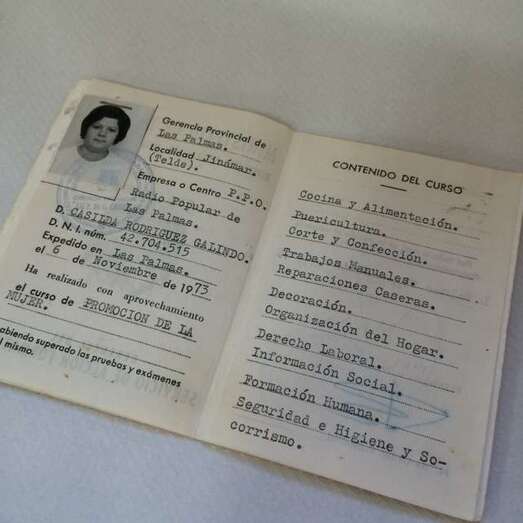 Gerencia Provincial de
Las Palmas.
Localidad Jinámar.
(Telde).
Empresa o Centro P.P.O.
Radio Popular de
Las Palmas.
D. CASILDA RODRIGUEZ GALINDO.
D. N. I. núm. 42.704.515
Expedido en Las Palmas.
el 6 de Noviembre de 1973
Ha realizado con aprovechamiento
el curso de PROMOCION DE LA
MUJER.
habiendo superado las pruebas y exámenes
el mismo.
CONTENIDO DEL CURSO
Cocina y Alimentación.
Puericultura.
Corte y Confección.
Trabajos Manuales.
Reparaciones Caseras.
Decoración.
Organización del Hogar.
Derecho Laboral.
Información Social.
Formación Humana.
Seguridad e Higiene y So-
corrismo.